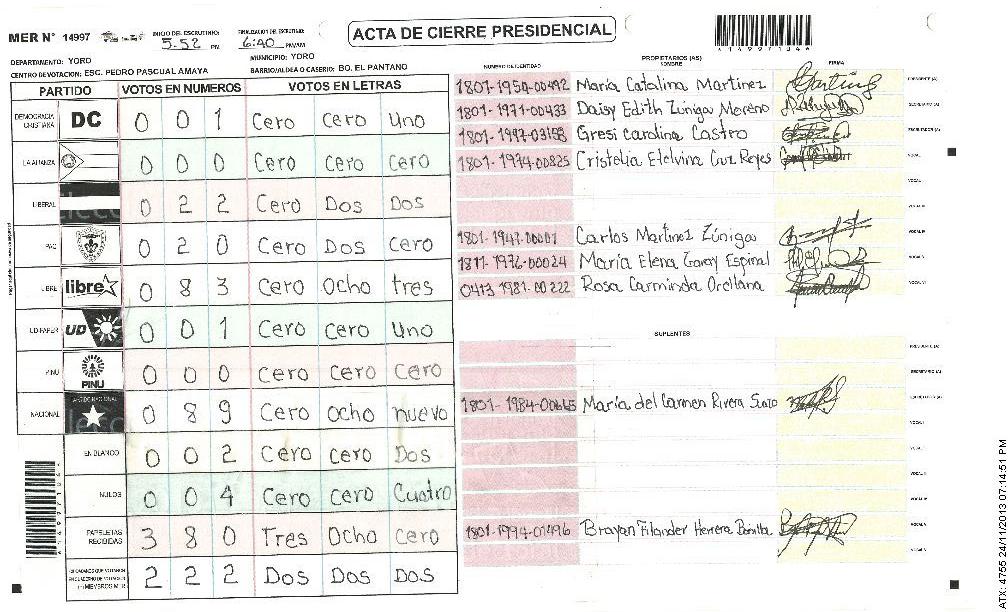 MER N° 14997
INICIO DEL ESCRUTINIO: 5:52 PM
FINALIZACION DEL ESCRUTINIO: 6:40 PM/AM
ACTA DE CIERRE PRESIDENCIAL
DEPARTAMENTO: YORO
MUNICIPIO: YORO
CENTRO DE VOTACION: ESC. PEDRO PASCUAL AMAYA
BARRIO/ALDEA O CASERIO: BO. EL PANTANO
PARTIDO VOTOS EN NUMEROS VOTOS EN LETRAS
DEMOCRACIA CRISTIANA DC 0 0 1 Cero Cero Uno
LA ALIANZA 0 0 0 Cero Cero Cero
LIBERAL 0 2 2 Cero Dos Dos
PAC 0 2 0 Cero Dos Cero
LIBRE libre 0 8 3 Cero Ocho tres
UD PAPER UD 0 0 1 Cero Cero Uno
PINU PINU 0 0 0 Cero Cero Cero
NACIONAL 0 8 9 Cero Ocho nuevo
EN BLANCO 0 0 2 Cero Cero Dos
NULOS 0 0 4 Cero Cero Cuatro
PAPELETAS RECIBIDAS 3 8 0 Tres Ocho Cero
2 2 2 Dos Dos Dos
PROPIETARIOS (AS)
NUMERO DE IDENTIDAD NOMBRE FIRMA
1801-1954-00492 María Catalina Martinez PRESIDENTE (A)
1801-1971-00433 Daisy Edith Zuniga Moreno SECRETARIO (A)
1801-1997-03158 Gresi Carolina Castro ESCRUTADOR (A)
1801-1974-00825 Cristelia Etelvina Cruz Reyes VOCAL I
VOCAL II
VOCAL III
1801-1947-00001 Carlos Martinez Zúniga VOCAL IV
1811-1976-00024 María Elena Garay Espinal VOCAL V
0413 1981-00222 Rosa Carminda Orellana VOCAL VI
SUPLENTES
PRESIDENTE (A)
SECRETARIO (A)
1801-1984-00645 María del Carmen Rivera ESCRUTADOR (A)
VOCAL I
VOCAL II
VOCAL III
VOCAL IV
1801-1994-01496 Brayan Filander Herrera Bonilla VOCAL V
VOCAL VI
ATX: 4755 24/11/2013 07:14:51 PM